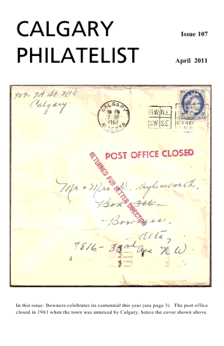 CALGARY
PHILATELIST
Issue 107
April 2011
907-7A St NW
Calgary
CALGARY
1962
N.W. N.E.
S.W. S.E.
POST OFFICE CLOSED
RETURNED FOR BETTER DIRECTION
Mr & Mrs W. Aylesworth,
Box 366
Bowness,
Alta,
7816-33rd Ave N.W.
In this issue: Bowness celebrates its centennial this year (see page 3) The post office
closed in 1961 when the town was annexed by Calgary, hence the cover shown above.